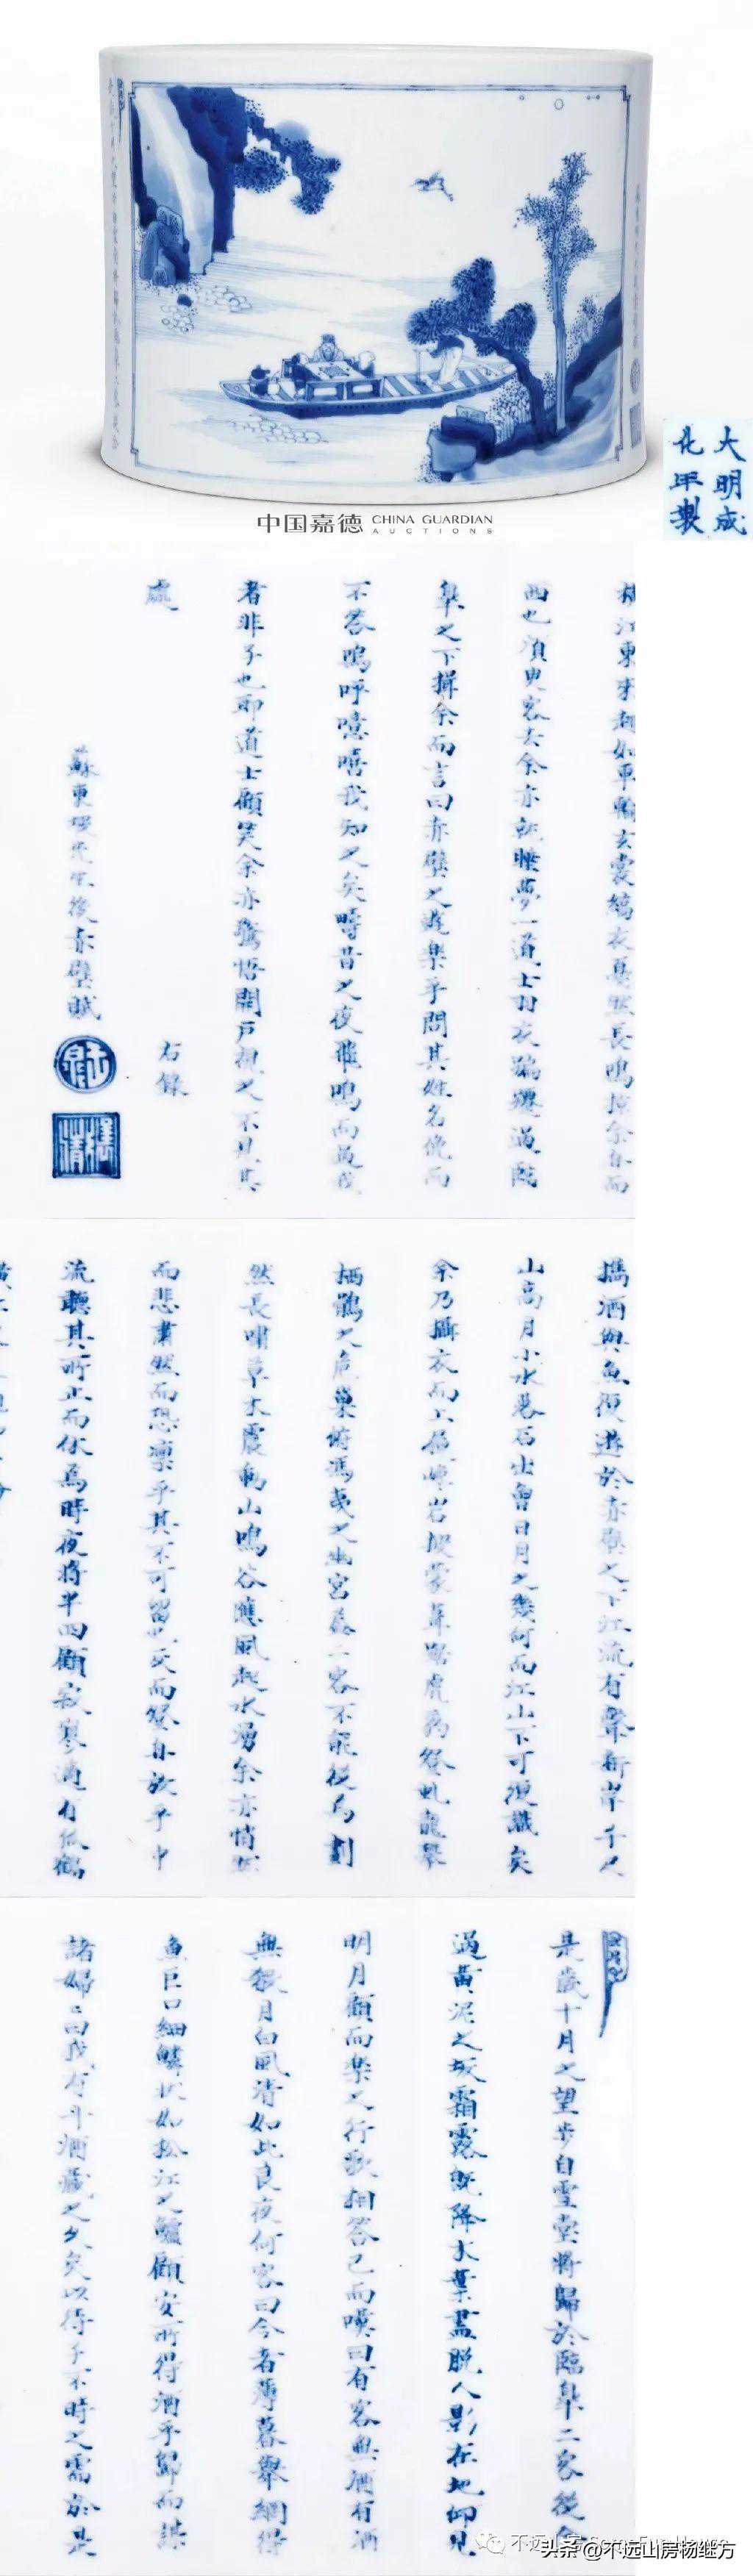 大明成
化年製
中国嘉德 CHINA GUARDIAN
AUCTIONS
橫江東來翅如車輪玄裳縞衣戛然長鳴掠余舟而
西也須臾客去余亦就睡夢一道士羽衣蹁躚過臨
皋之下揖余而言曰赤壁之遊樂乎問其姓名俛而
不答嗚呼噫嘻我知之矣疇昔之夜飛鳴而過我
者非子也耶道士顧笑余亦驚悟開戶視之不見其
處
右錄
蘇東坡先生後赤壁賦
攜酒與魚復遊於赤壁之下江流有聲斷岸千尺
山高月小水落石出曾日月之幾何而江山不可復識矣
余乃攝衣而上履巉岩披蒙茸踞虎豹登虬龍攀
栖鶻之危巢俯馮夷之幽宮蓋二客不能從焉劃
然長嘯草木震動山鳴谷應風起水湧余亦悄然
而悲肅然而恐凜乎其不可留也反而登舟放乎中
流聽其所止而休焉時夜將半四顧寂寥適有孤鶴
是歲十月之望步自雪堂將歸於臨皋二客從余
過黃泥之坂霜露既降木葉盡脫人影在地仰見
明月顧而樂之行歌相答已而嘆曰有客無酒有酒
無殽月白風清如此良夜何客曰今者薄暮舉網得
魚巨口細鱗狀如松江之鱸顧安所得酒乎歸而謀
諸婦婦曰我有斗酒藏之久矣以待子不時之需於是
头条@不远山房杨继方